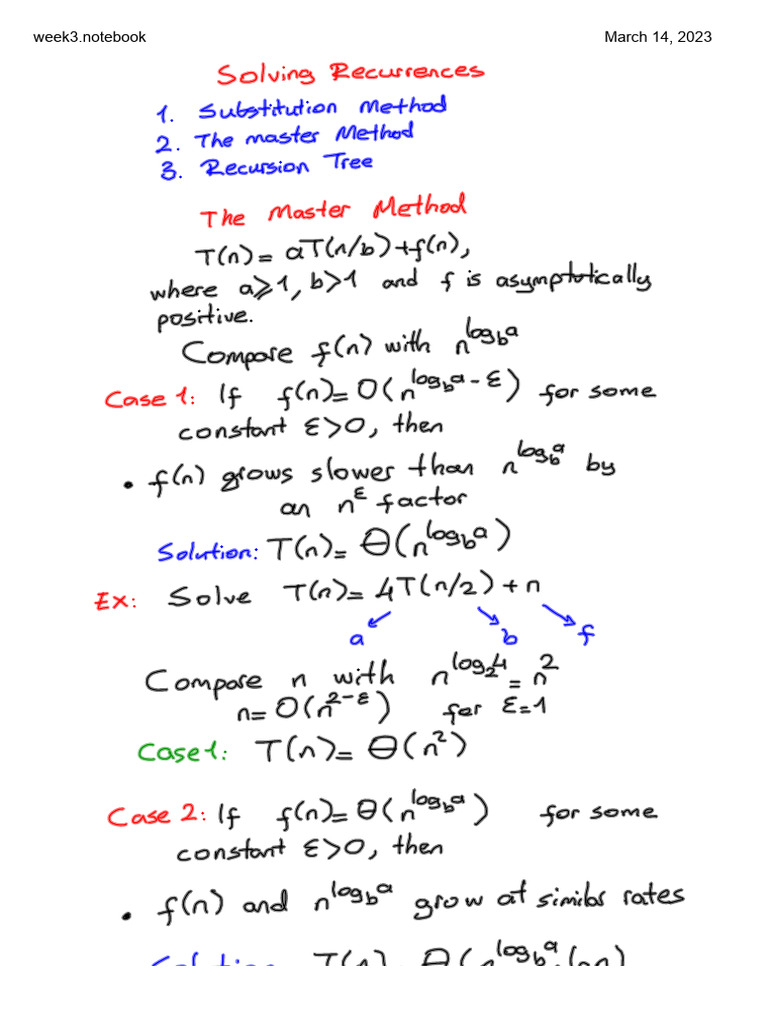 week3.notebook March 14, 2023
Solving Recurrences
1. Substitution Method
2. The master Method
3. Recursion Tree
The Master Method
T(n)= aT(n/b)+f(n),
where a⩾1, b>1 and f is asymptotically
positive.
Compare f(n) with n^{log_b a}
Case 1: If f(n)= O(n^{log_b a - ε}) for some
constant ε>0, then
• f(n) grows slower than n^{log_b a} by
an n^ε factor
Solution: T(n)= Θ(n^{log_b a})
Ex: Solve T(n)= 4T(n/2)+n
a b f
Compare n with n^{log_2 4} = n^2
n= O(n^{2-ε}) for ε=1
Case 1: T(n)= Θ(n^2)
Case 2: If f(n)= Θ(n^{log_b a}) for some
constant ε>0, then
• f(n) and n^{log_b a} grow at similar rates
Solution T(n) Θ(n^{log_b a}